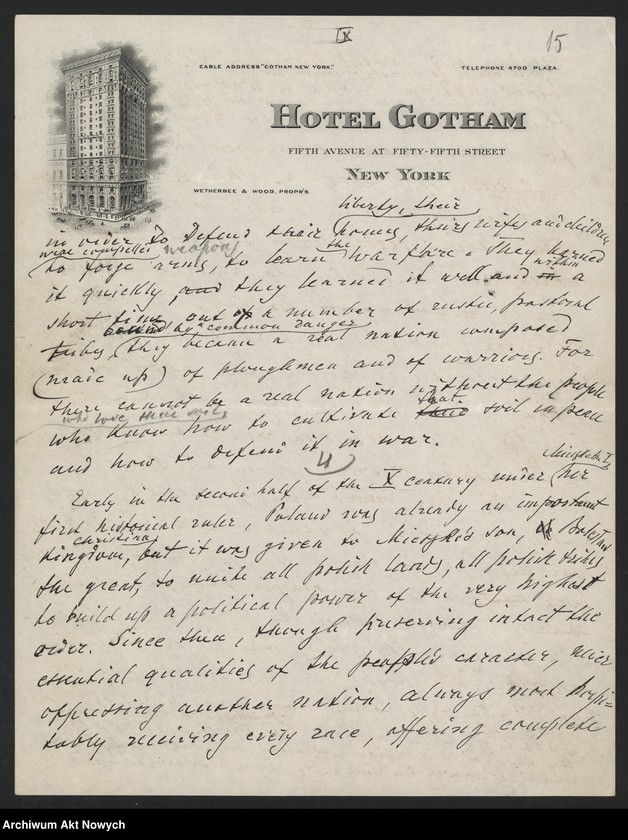 IX
15
CABLE ADDRESS "GOTHAM NEW YORK."
TELEPHONE 4700 PLAZA.
HOTEL GOTHAM
FIFTH AVENUE AT FIFTY-FIFTH STREET
NEW YORK
WETHERBEE & WOOD, PROPR'S
liberty, their
in order to defend their homes, their wifes and children
were compelled weapons
to forge arms, to learn the warfare. They learned
it quickly, and they learned it well and in within a
short time out of a number of rustic, pastoral
bound by a common danger
tribes (they became a real nation composed
(made up) of ploughmen and of warriors. For
there cannot be a real nation without the people
who love their soil, that
who know how to cultivate their soil in peace
and how to defend it in war.
4
Early in the second half of the X century under her
first historical ruler, Poland was already an important
christian
Kingdom, but it was given to Mieszko's son, Boleslaus
the great, to unite all polish lands, all polish tribes
to build up a political power of the very highest
order. Since then, though preserving intact the
essential qualities of the people's caracter, never
oppressing another nation, always most hospi=
tably receiving every race, offering complete
Archiwum Akt Nowych